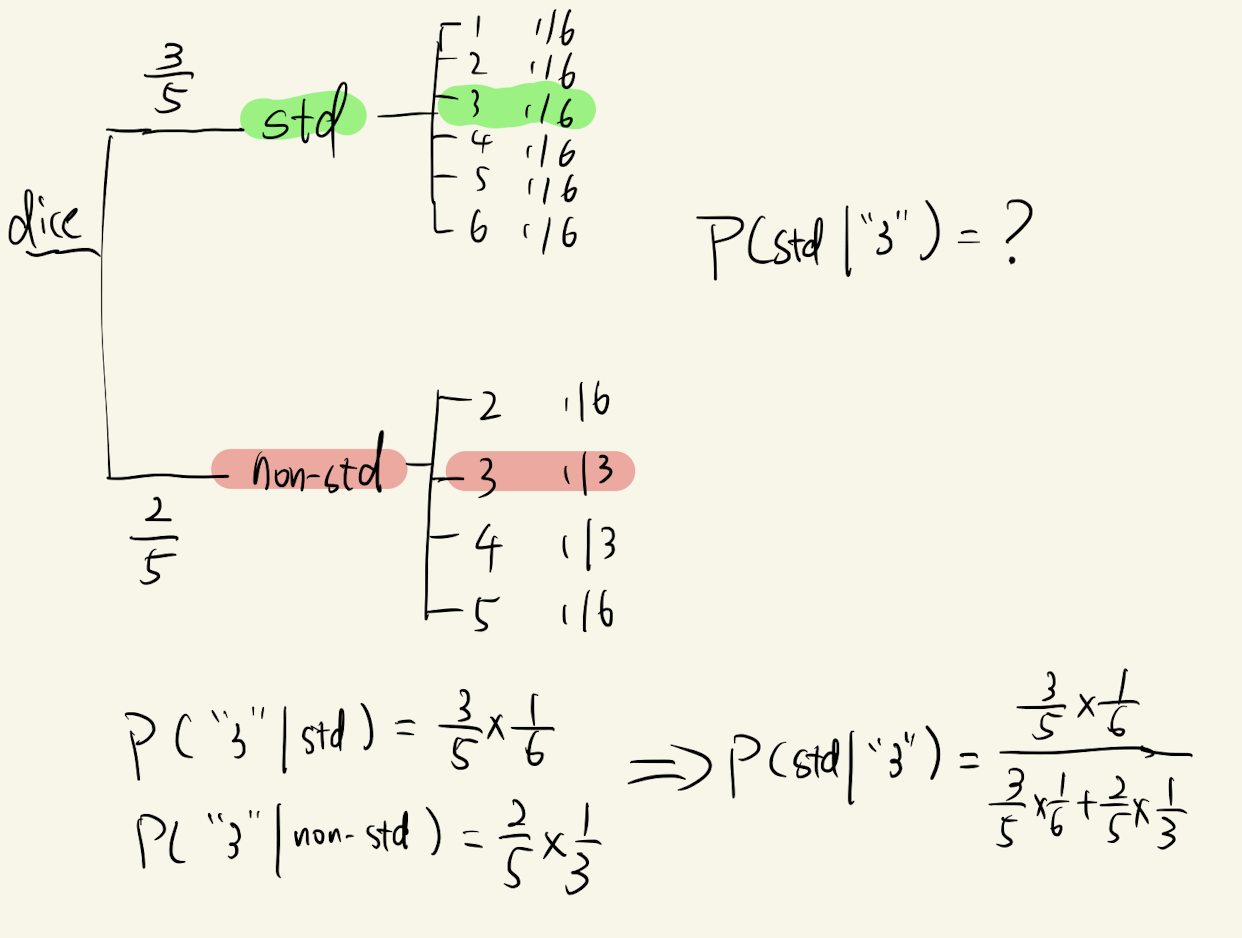 dice
3/5
std
1 1/6
2 1/6
3 1/6
4 1/6
5 1/6
6 1/6
P(std | "3") = ?
2/5
non-std
2 1/6
3 1/3
4 1/3
5 1/6
P("3" | std) = 3/5 × 1/6
P("3" | non-std) = 2/5 × 1/3
⇒ P(std | "3") = (3/5 × 1/6) / (3/5 × 1/6 + 2/5 × 1/3)